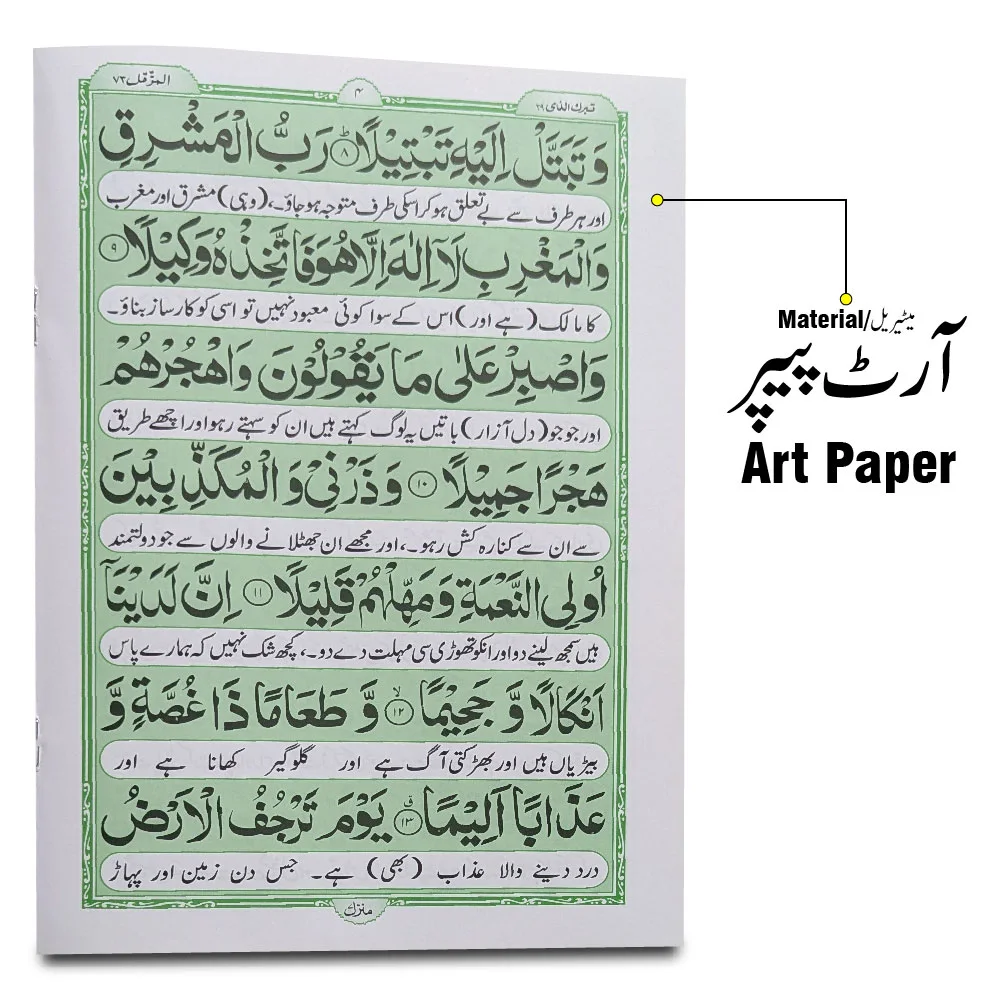 تبرك الذی ۲۹
۴
المزّمّل ۷۳
وَ تَبَتَّلْ اِلَیْهِ تَبْتِیْلًا ۸ رَبُّ الْمَشْرِقِ
اور ہر طرف سے بے تعلق ہو کر اسکی طرف متوجہ ہو جاؤ۔، (وہی) مشرق اور مغرب
وَالْمَغْرِبِ لَاۤ اِلٰهَ اِلَّا هُوَ فَاتَّخِذْهُ وَكِیْلًا ۹
کا مالک (ہے اور) اس کے سوا کوئی معبود نہیں تو اسی کو کارساز بناؤ۔
وَاصْبِرْ عَلٰی مَا یَقُوْلُوْنَ وَاهْجُرْهُمْ
اور جو جو (دل آزار) باتیں یہ لوگ کہتے ہیں ان کو سہتے رہو اور اچھے طریق
هَجْرًا جَمِیْلًا ۱۰ وَ ذَرْنِیْ وَ الْمُكَذِّبِیْنَ
سے ان سے کنارہ کش رہو۔، اور مجھے ان جھٹلانے والوں سے جو دولتمند
اُولِی النَّعْمَةِ وَ مَهِّلْهُمْ قَلِیْلًا ۱۱ اِنَّ لَدَیْنَاۤ
ہیں سمجھ لینے دو اور انکو تھوڑی سی مہلت دے دو۔، کچھ شک نہیں کہ ہمارے پاس
اَنْكَالًا وَّ جَحِیْمًا ۱۲ۙ وَّ طَعَامًا ذَا غُصَّةٍ وَّ
بیڑیاں ہیں اور بھڑکتی آگ ہے اور گلوگیر کھانا ہے اور
عَذَابًا اَلِیْمًا ۱۳ۗ یَوْمَ تَرْجُفُ الْاَرْضُ
درد دینے والا عذاب (بھی) ہے۔ جس دن زمین اور پہاڑ
منزل
Material/میٹیریل
آرٹ پیپر
Art Paper